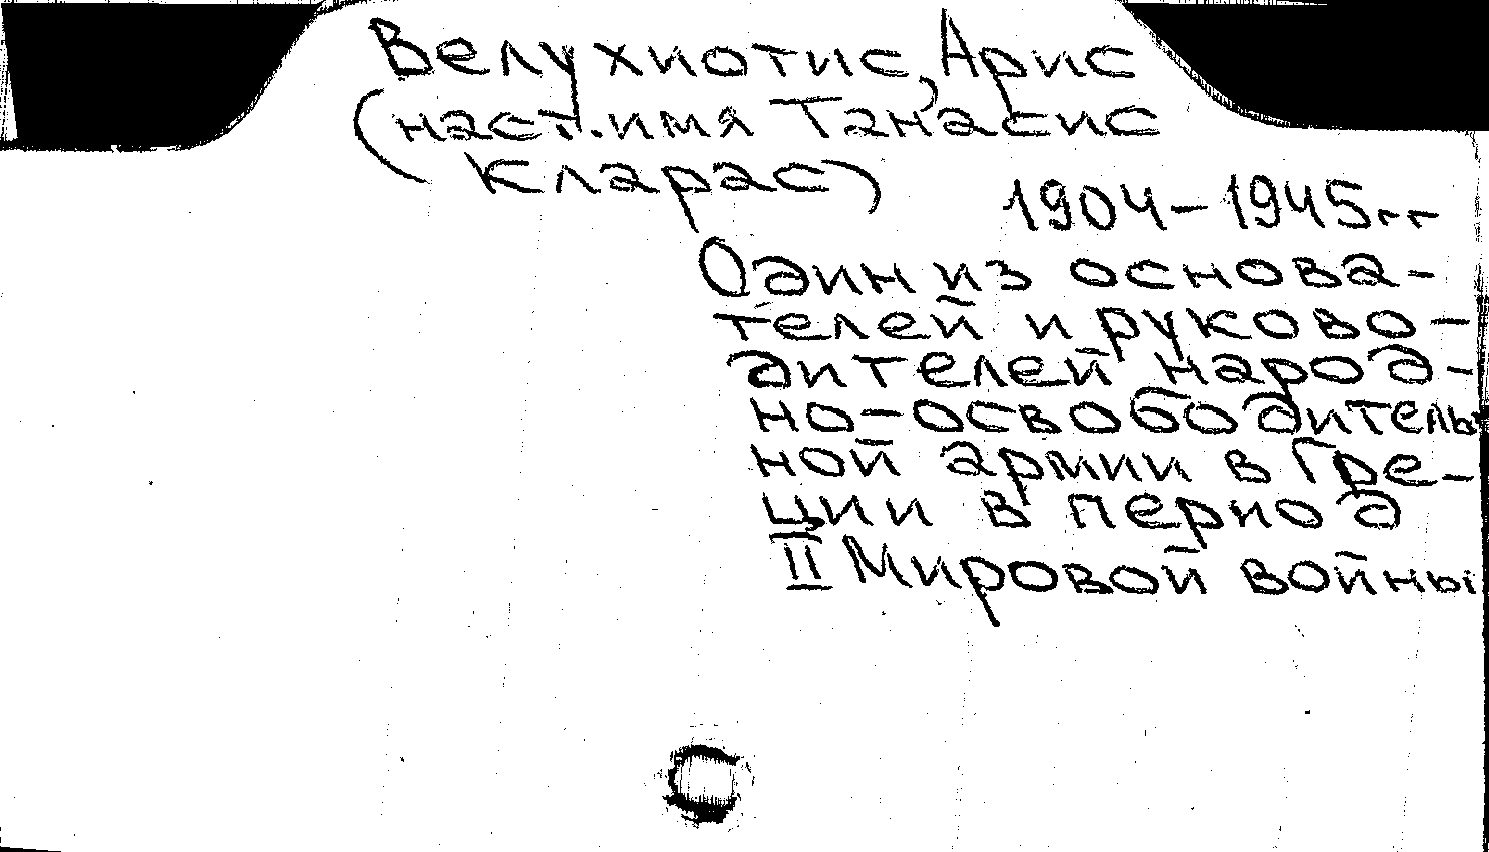 Велухиотис, Арис
(наст. имя Танасис
Кларас)
1904-1945 гг
Один из основа-
телей и руково-
дителей народ-
но-освободитель-
ной армии в Гре-
ции в период
II Мировой войны